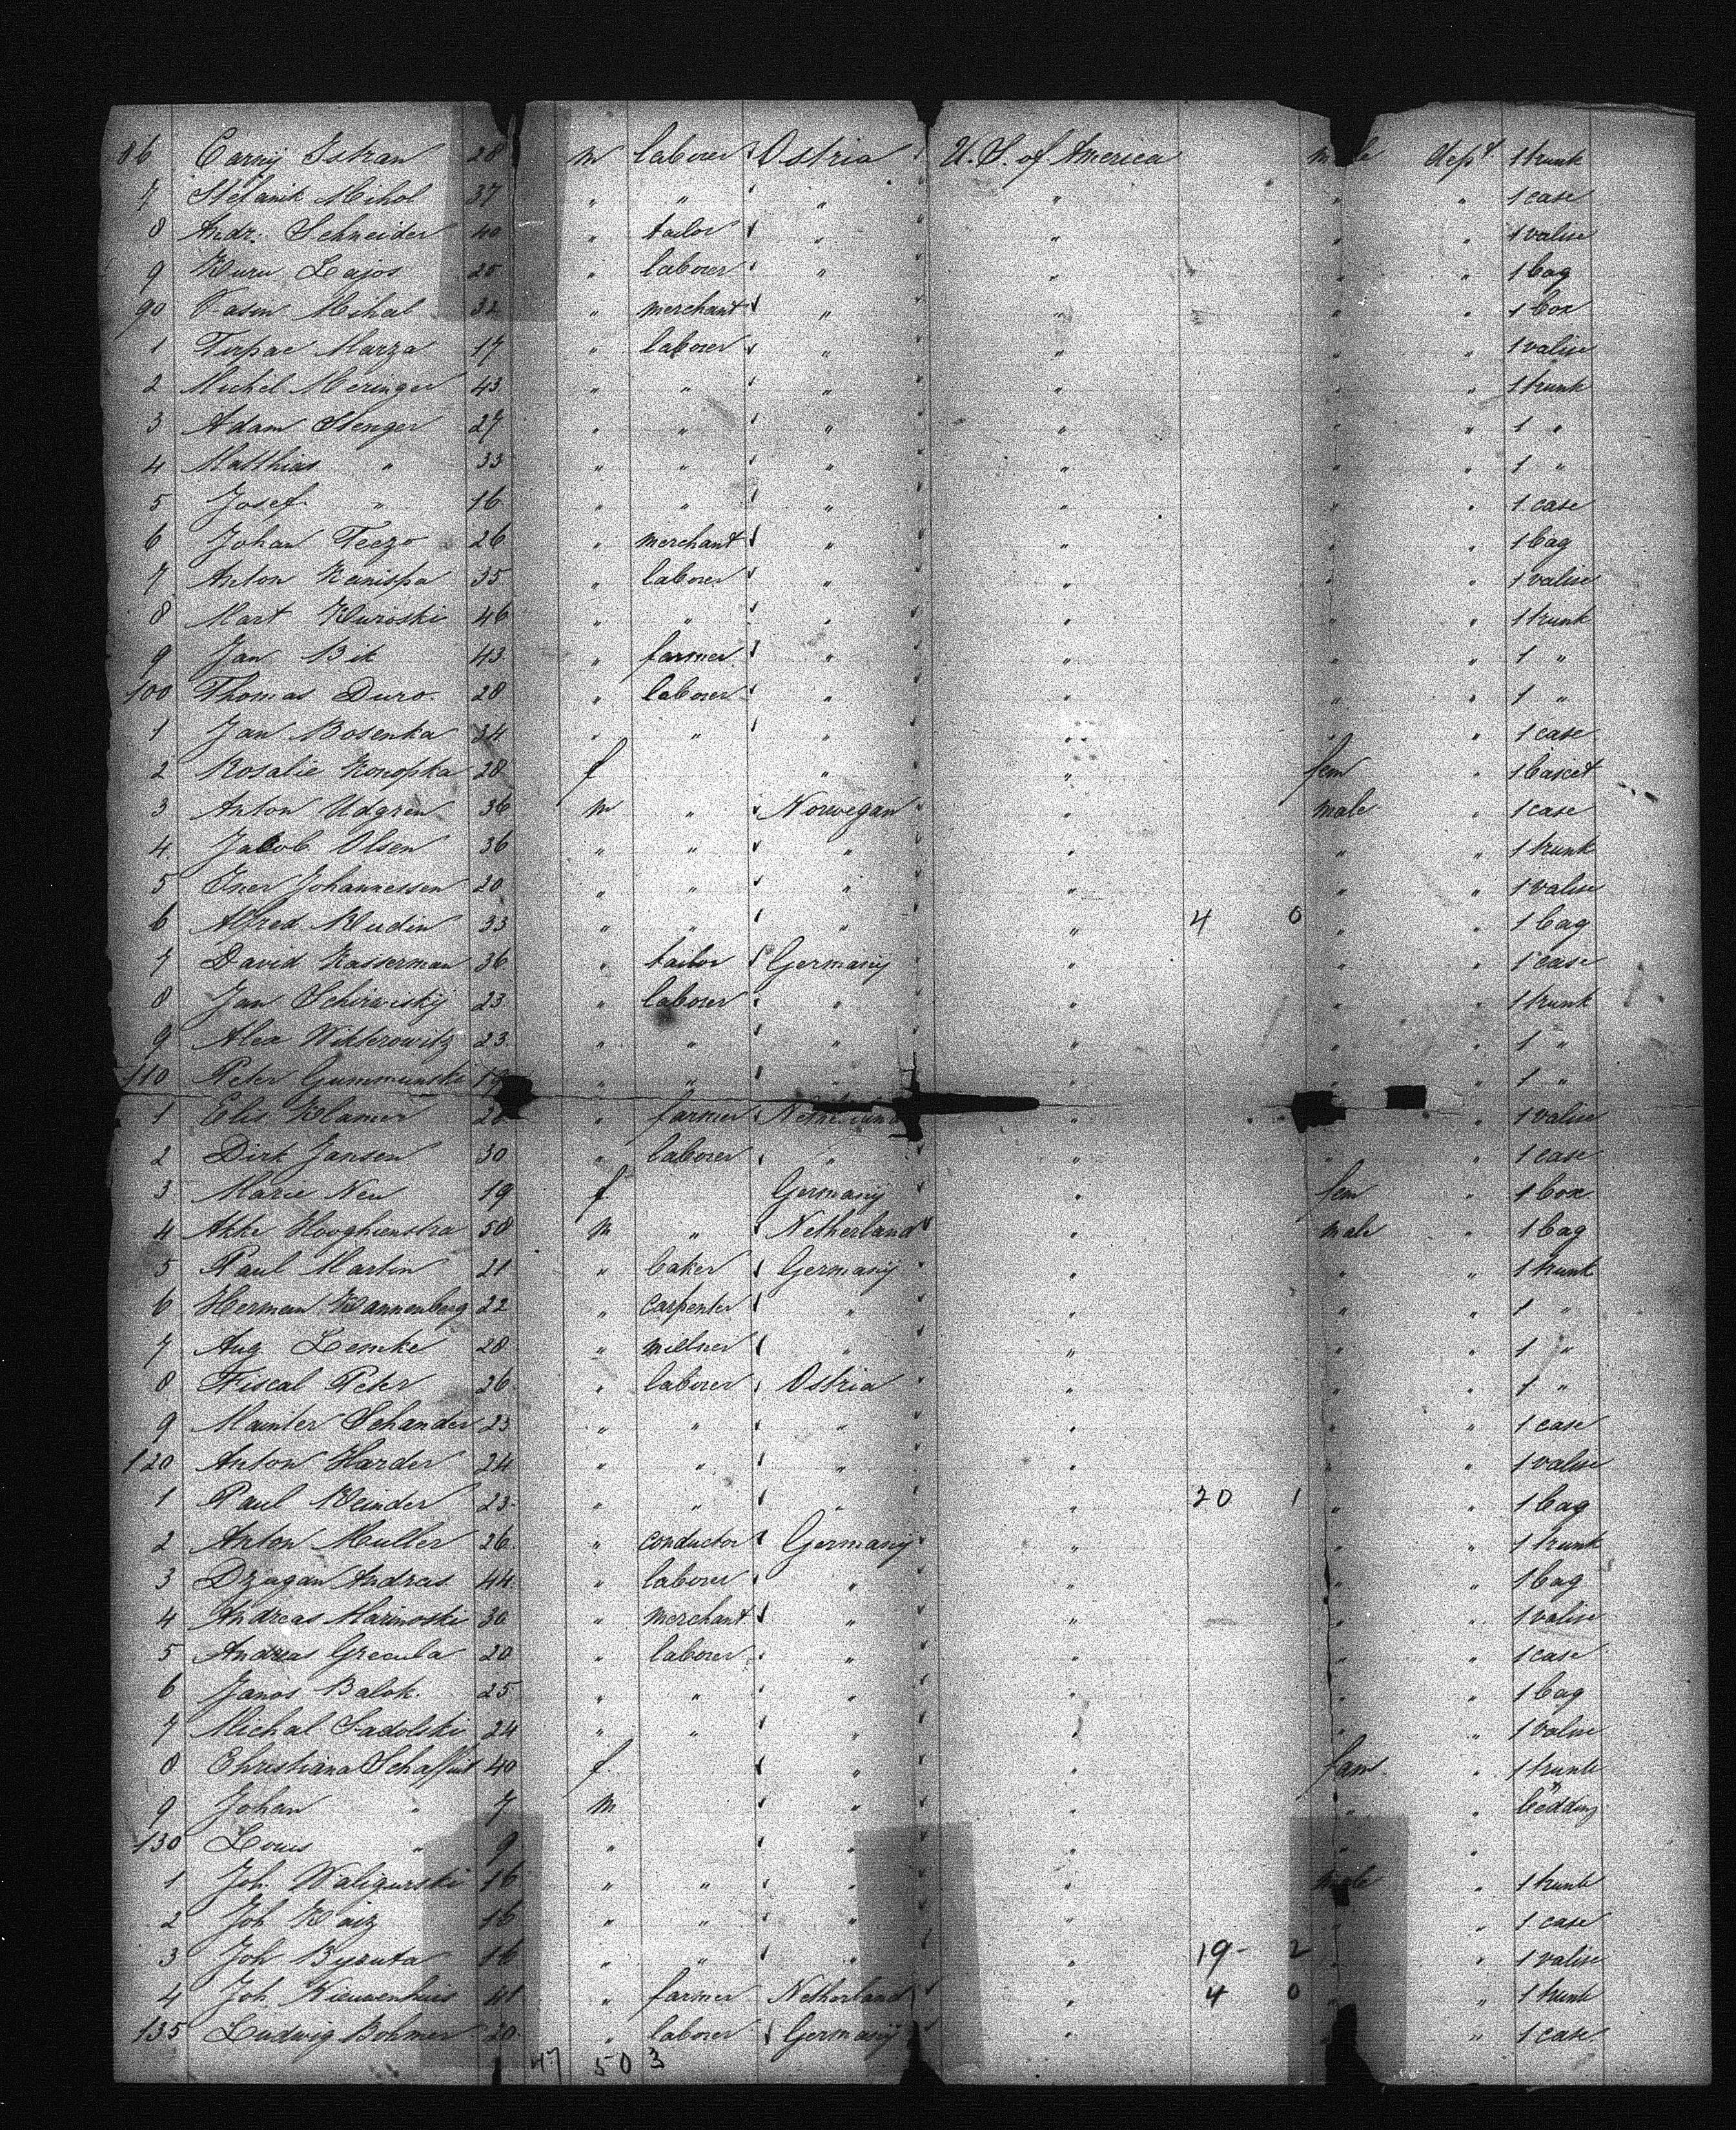 86 Carnij Istran 28 m laborer Ostria U.S. of America male dept 1 trunk
7 Stefanik Mihol 37 " " " " " " 1 case
8 Andr. Schneider 40 " tailor " " " " 1 valise
9 Kuru Lajos 25 " laborer " " " " 1 bag
90 Vasin Mihal 32 " merchant " " " " 1 box
1 Tirpac Marza 17 " laborer " " " " 1 valise
2 Michel Meringer 43 " " " " " " 1 trunk
3 Adam Stenger 27 " " " " " " 1 "
4 Matthias " 33 " " " " " " 1 "
5 Josef " 16 " " " " " " 1 case
6 Johan Teczo 26 " merchant " " " " 1 bag
7 Anton Kanispa 35 " laborer " " " " 1 valise
8 Mart Kuroski 46 " " " " " " 1 trunk
9 Jan Bik 43 " farmer " " " " 1 "
100 Thomas Duro 28 " laborer " " " " 1 "
1 Jan Bosenka 34 " " " " " " 1 case
2 Rosalie Konopka 28 f " " fem " 1 bascet
3 Anton Udgren 36 m " Norwegan " male " 1 case
4 Jacob Olsen 36 " " " " " " 1 trunk
5 Iner Johannessen 20 " " " " " " 1 valise
6 Alfred Rudin 33 " " " " 4 0 " " 1 bag
7 David Kasserman 36 " tailor Germanij " " " 1 case
8 Jan Schirwiskij 23 " laborer " " " " 1 trunk
9 Alex Wikterowitz 23 " " " " " " 1 "
110 Peter Gummunski 19 " " " " " " 1 "
1 Elis Klamer " farmer Netherland " " 1 valise
2 Dirk Jansen 30 " laborer " " " " 1 case
3 Marie Neu 19 f Germanij " fem " 1 box
4 Akke Hooghienstra 58 m " Netherland " male " 1 bag
5 Paul Martin 21 " baker Germanij " " " 1 trunk
6 Herman Kannenberg 22 " carpenter " " " " 1 "
7 Aug Lemke 28 " millner " " " " 1 "
8 Fiscal Peter 26 " laborer Ostria " " " 1 "
9 Mainter Schander 23 " " " " " " 1 case
120 Anton Harder 24 " " " " " " 1 valise
1 Paul Reinder 23 " " " " 20 1 " " 1 bag
2 Anton Muller 26 " conductor Germanij " " " 1 trunk
3 Dzugan Andreas 44 " laborer " " " " 1 bag
4 Andreas Marinoski 30 " merchant " " " " 1 valise
5 Andreas Grecula 20 " laborer " " " " 1 case
6 Janos Balok 25 " " " " " " 1 bag
7 Michal Sadolski 24 " " " " " " 1 valise
8 Christiana 40 f " " fam " 1 trunk
9 Johan " 7 m " " " " bedding
130 Louis " 9 " " " " "
1 Joh. Waligurski 16 " " " " male " 1 trunk
2 Joh Kaiz 16 " " " " " " 1 case
3 Joh Byruta 16 " " " " 19 - 2 " 1 valise
4 Joh Nieuwenhuis 41 " farmer Netherland " 4 0 " " 1 trunk
135 Ludwig Bohmer 20 " laborer Germanij " " " 1 case
47 50 3